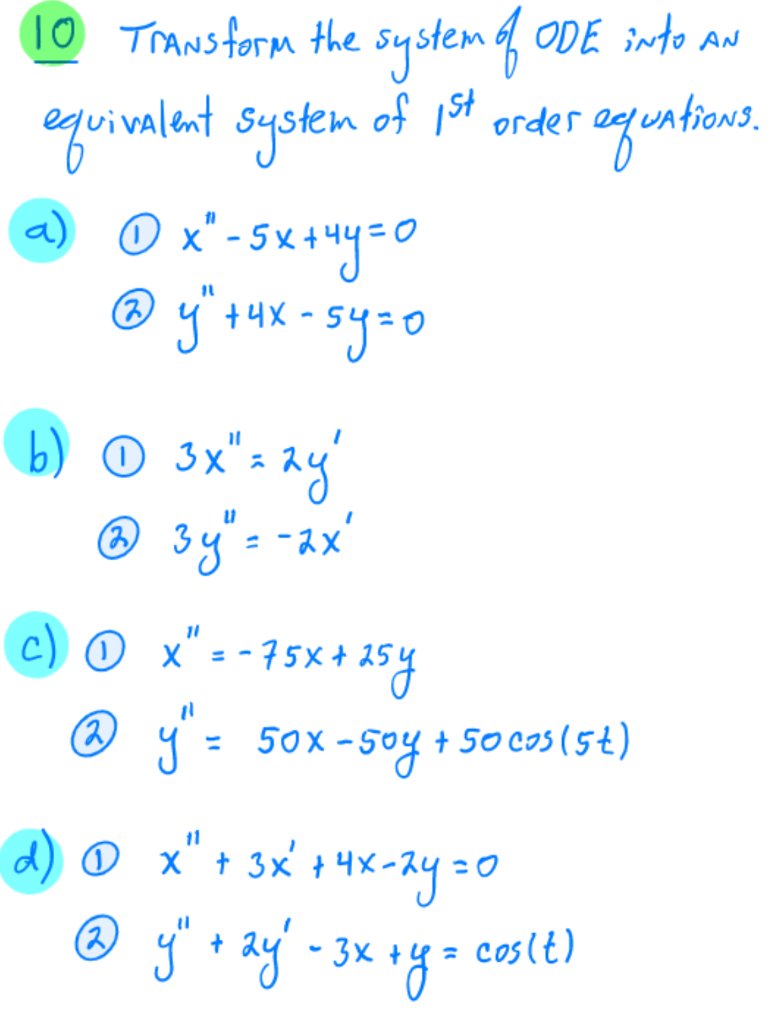 10 Transform the system of ODE into an
equivalent system of 1st order equations.
a) ① x" - 5x + 4y = 0
② y" + 4x - 5y = 0
b) ① 3x" = 2y'
② 3y" = -2x'
c) ① x" = -75x + 25y
② y" = 50x - 50y + 50 cos(5t)
d) ① x" + 3x' + 4x - 2y = 0
② y" + 2y' - 3x + y = cos(t)